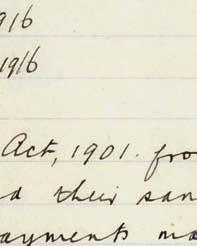 916
1916
Act, 1901. fro
d their san
ayments ma